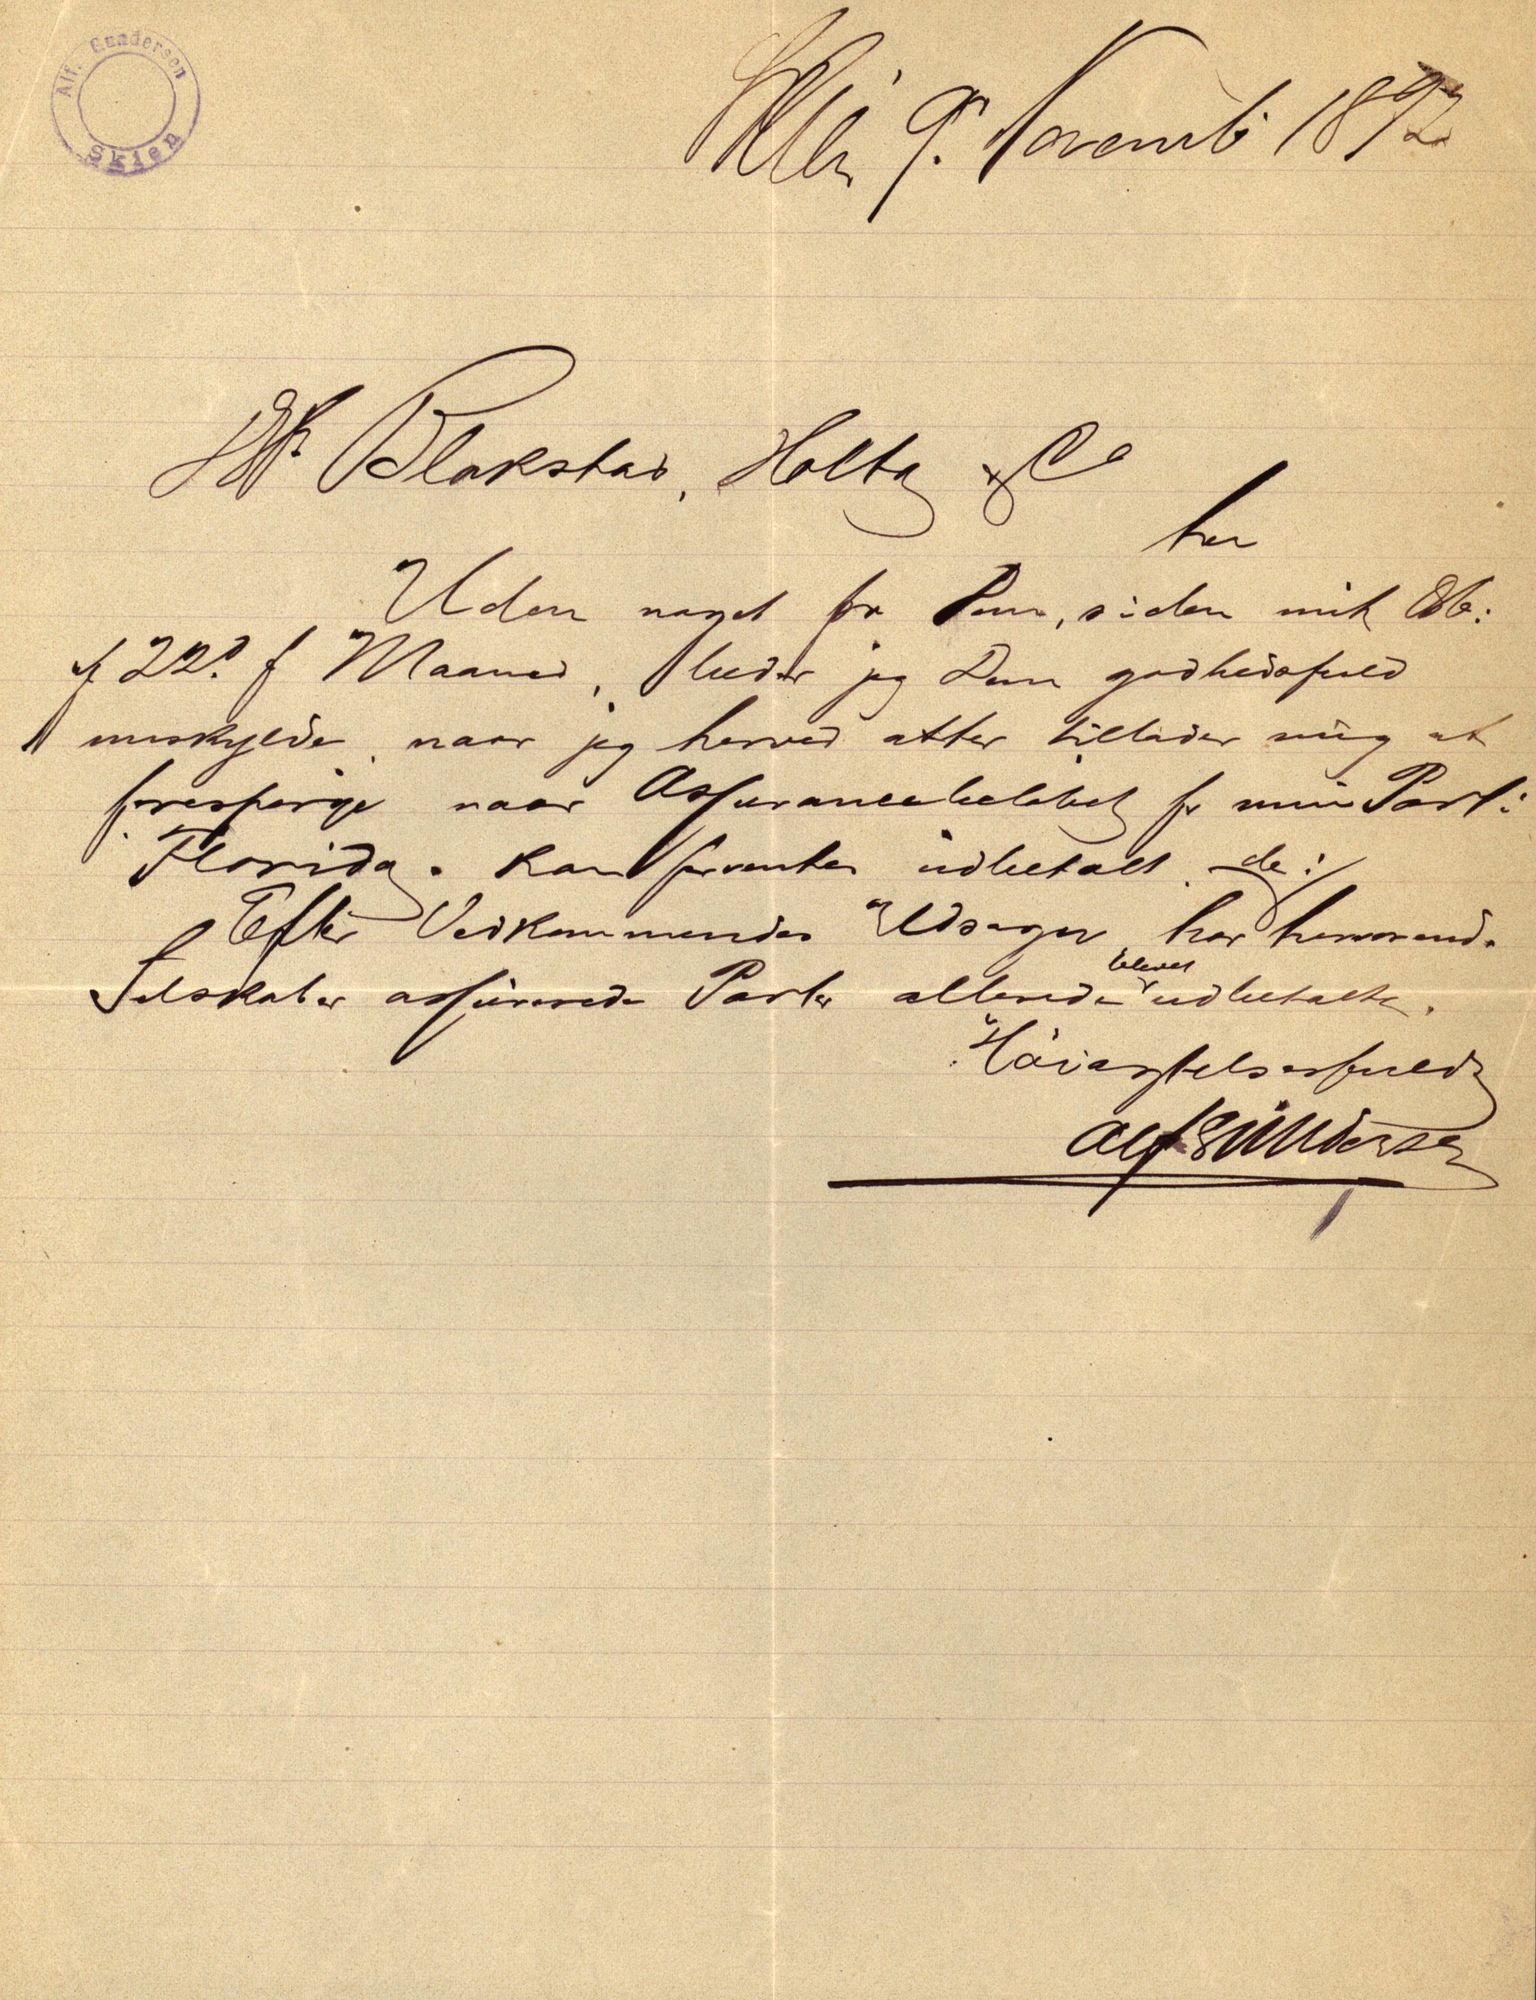 Alf. Gundersen
Skien
Skien 9. Novemb 1892
HH. Blakstad, Holta & Co
her
Uden noget fra Dem, siden mit Æb:
af 22d. f Maaned, beder jeg Dem godhedsfuld
undskylde, naar jeg herved atter tillader mig at
forespørge naar Assurancebeløbet for min Part:
Florida. kan forventes udbetalt.
Efter Vedkommendes Udsagn, har herværende
Selskaber assurerede Parter allerede blevet udbetalte.
Høiagtelsesfuld
Alf Gundersen